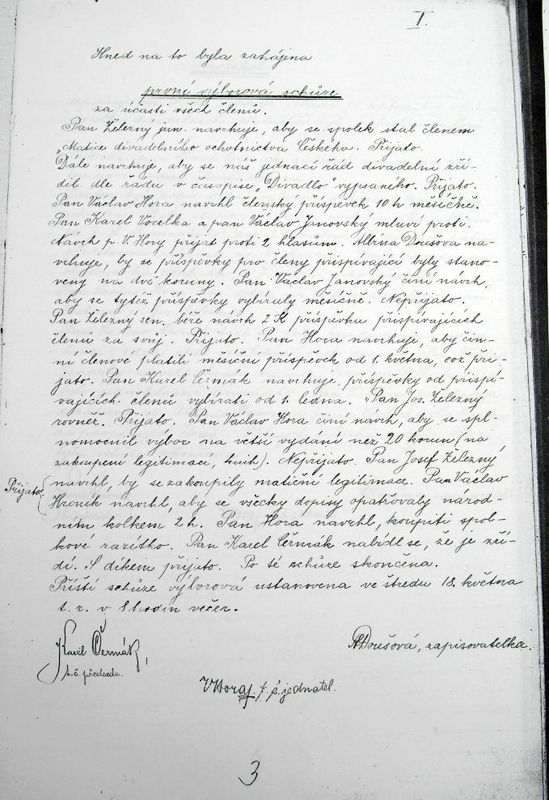 I.
Hned na to byla zahájena
první výborová schůze
za účasti všech členů.
Pan Železný jun. navrhuje, aby se spolek stal členem
„Matice divadelního ochotnictva Českého. Přijato.
Dále navrhuje, aby se náš jednací řád divadelní zří-
dil dle řádu v časopise „Divadlo" vypsaného. Přijato.
Pan Václav Hora navrhl členský příspěvek 10 h měsíčně.
Pan Karel Vocelka a pan Václav Janovský mluví proti.
Návrh p. V. Hory přijat proti 2 hlasům. Albína Doušova na-
vrhuje, by se příspěvky pro členy přispívající byly stano-
veny na dvě koruny. Pan Václav Janovský činí návrh,
aby se tytéž příspěvky vybíraly měsíčně. Nepřijato.
Pan Železný sen. béře návrh 2 K příspěvku přispívajících
členů za svůj. Přijato. Pan Hora navrhuje, aby čin-
ní členové platili měsíční příspěvek od 1. května, což při-
jato. Pan Karel Čermák navrhuje příspěvky od přispí-
vajících členů vybírati od 1. ledna. Pan Jos. Železný
rovněž. Přijato. Pan Václav Hora činí návrh, aby se spl-
nomocnil výbor na větší vydání než 20 korun (na
zakoupení legitimací, knih). Nepřijato. Pan Josef Železný
navrhl, by se zakoupily matiční legitimace. Pan Václav
Přijato (Hroník navrhl, aby se všecky dopisy opatřovaly národ-
ním kolkem 2 h. Pan Hora navrhl, koupiti spol-
kové razítko. Pan Karel Čermák nabídl se, že je zří-
dí. S díkem přijato. Po té schůze skončena.
Příští schůze výborová ustanovena ve středu 18. května
t. r. v 8 hodin večer.
Karel Čermák,
t. č. předseda.
A Doušová, zapisovatelka.
V Hora t. č. jednatel.
3